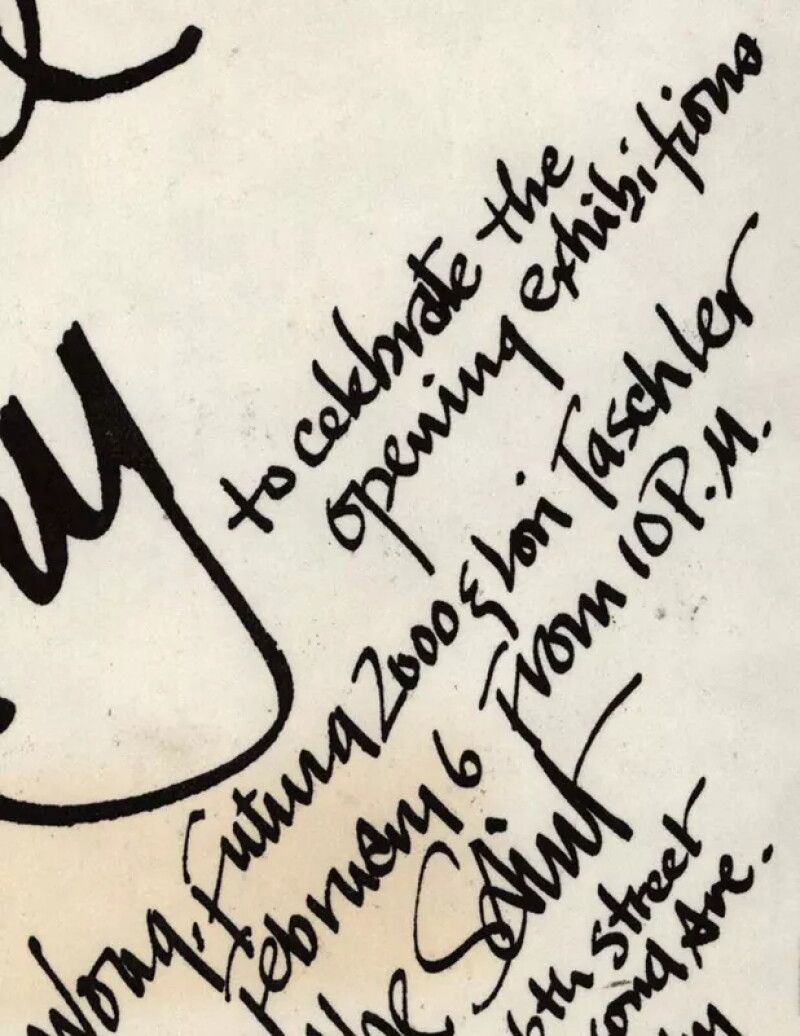 to celebrate the
opening exhibitions
Wong, Futura 2000 & Lori Taschler
February 6 From 10 P.M.
The Saint
6th Street
Ave.